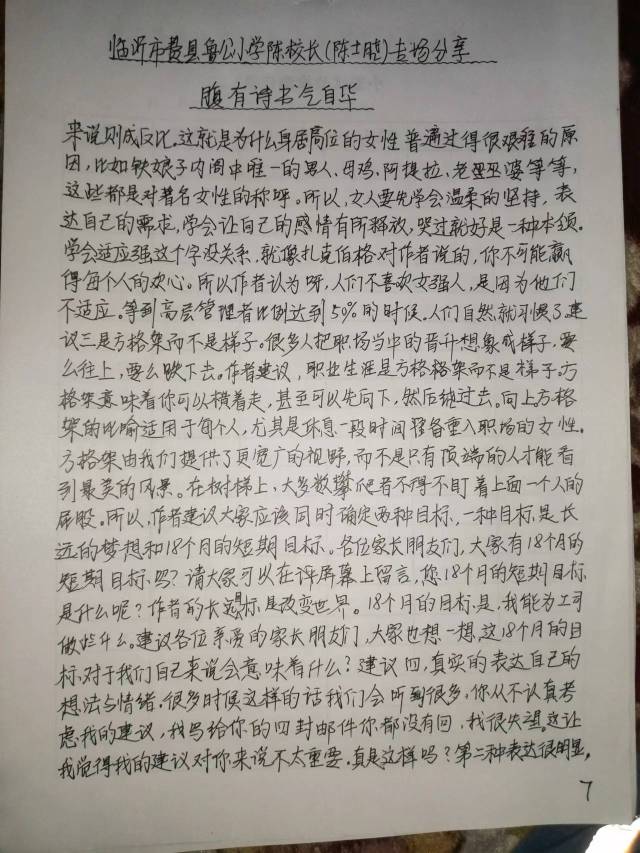 临沂市费县鲁公小学陈校长(陈士腾)专场分享
腹有诗书气自华
来说则成反比。这就是为什么身居高位的女性普遍过得很艰难的原
因,比如铁娘子内阁中唯一的男人、母鸡,阿提拉、老巫婆等等,
这些都是对著名女性的称呼。所以,女人要先学会温柔的坚持,表
达自己的需求,学会让自己的感情有所释放,哭过就好是一种本领。
学会适应强这个字没关系,就像扎克伯格对作者说的,你不可能赢
得每个人的欢心。所以作者认为呀,人们不喜欢女强人,是因为他们
不适应。等到高层管理者比例达到50%的时候,人们自然就习惯了。建
议三是方格架而不是梯子。很多人把职场当中的晋升想象成梯子,要
么往上,要么跌下去。作者建议,职业生涯是方格格架而不是梯子。方
格架意味着你可以横着走,甚至可以先向下,然后绕过去。向上方格
架的比喻适用于每个人,尤其是休息一段时间准备重入职场的女性。
方格架由我们提供了更宽广的视野,而不是只有顶端的人才能看
到最美的风景。在树梯上,大多数攀爬者不得不盯着上面一个人的
屁股。所以,作者建议大家应该同时确定两种目标,一种目标是长
远的梦想和18个月的短期目标。各位家长朋友们,大家有18个月的
短期目标吗?请大家可以在评屏幕上留言,您18个月的短期目标
是什么呢?作者的长远目标是改变世界。18个月的目标是,我能为公司
做些什么。建议各位亲爱的家长朋友们,大家也想一想,这18个月的目
标对于我们自己来说会意味着什么?建议四,真实的表达自己的
想法与情绪。很多时候这样的话我们会听到很多。你从不认真考
虑我的建议,我写给你的四封邮件你都没有回,我很失望。这让
我觉得我的建议对你来说不太重要。真是这样吗?第二种表达很明显,
7